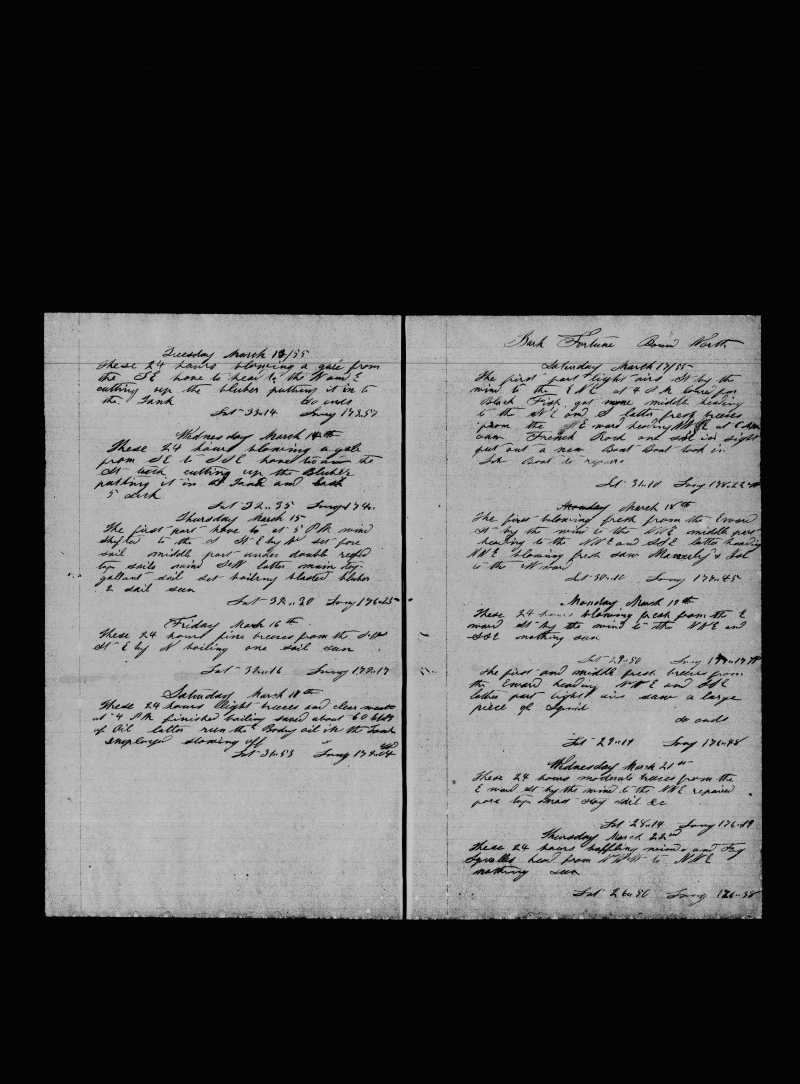 Tuesday March 13/55
These 24 hours blowing a gale from
the S E hove to head to the W and E
cutting up the blubber putting it in to
the Tank So ends
Lat 33..14 Long 173.57
Wednesday March 14th
These 24 hours blowing a gale
from S E to S S E hove to
cutting up the Blubber
putting it in Tank and
5 Deck
Lat 32..35 Long 174
Thursday March 15
The first part hove to at 5 P.M. wind
shifted to the S St E by N set fore
sail middle part under double reefed
top sails wind S.W latter main top
gallant sail set boiling blubber
2 sail seen
Lat 32..20 Long 176..25
Friday March 16th
These 24 hours fine breeses from the
St E by N boiling one sail seen
Lat 32..16 Long 179.17
Saturday March 18th
These 24 hours light breeses and clear
at 4 P.M. finished boiling saved about 60 bbls
of Oil latter run the Body oil in the Tank
employed stowing off
Lat 31..53 Long 179..04
Bark Fortune Bound North
Saturday March 17/55
The first part light airs St by the
wind to the E N E at 4 P.M. lowered for
Black Fish got none middle heading
to the N E and S latter fresh breeses
from the E ward heading N N E at 6 A.M
saw French Rock one sail in sight
put out a new Boat Boat took in
Boat to repair
Lat 31.10 Long 178..22
Monday March 18th
The first blowing fresh from the Eward
St by the wind to the N N E middle part
heading to the N N E and S S E latter heading
N N E blowing fresh saw
to the N ward
Lat 30..10 Long 177..45
Monday March 19th
These 24 hours blowing fresh from the E
ward St by the wind to the N N E and
S S E nothing seen
Lat 29..50 Long
The first and middle fresh breeses from
the Eward heading N N E and S S E
latter part light airs saw a large
piece of Squid
So ends
Lat 29..19 Long 176..48
Wednesday March 21st
These 24 hours moderate breeses from the
E ward St by the wind to the N N E repaired
fore top mast stay sail &c
Lat 28..14 Long 176..19
Thursday March 22nd
These 24 hours baffling winds and
Squalles head from N W W to N N E
nothing seen
Lat 26..50 Long 176..38